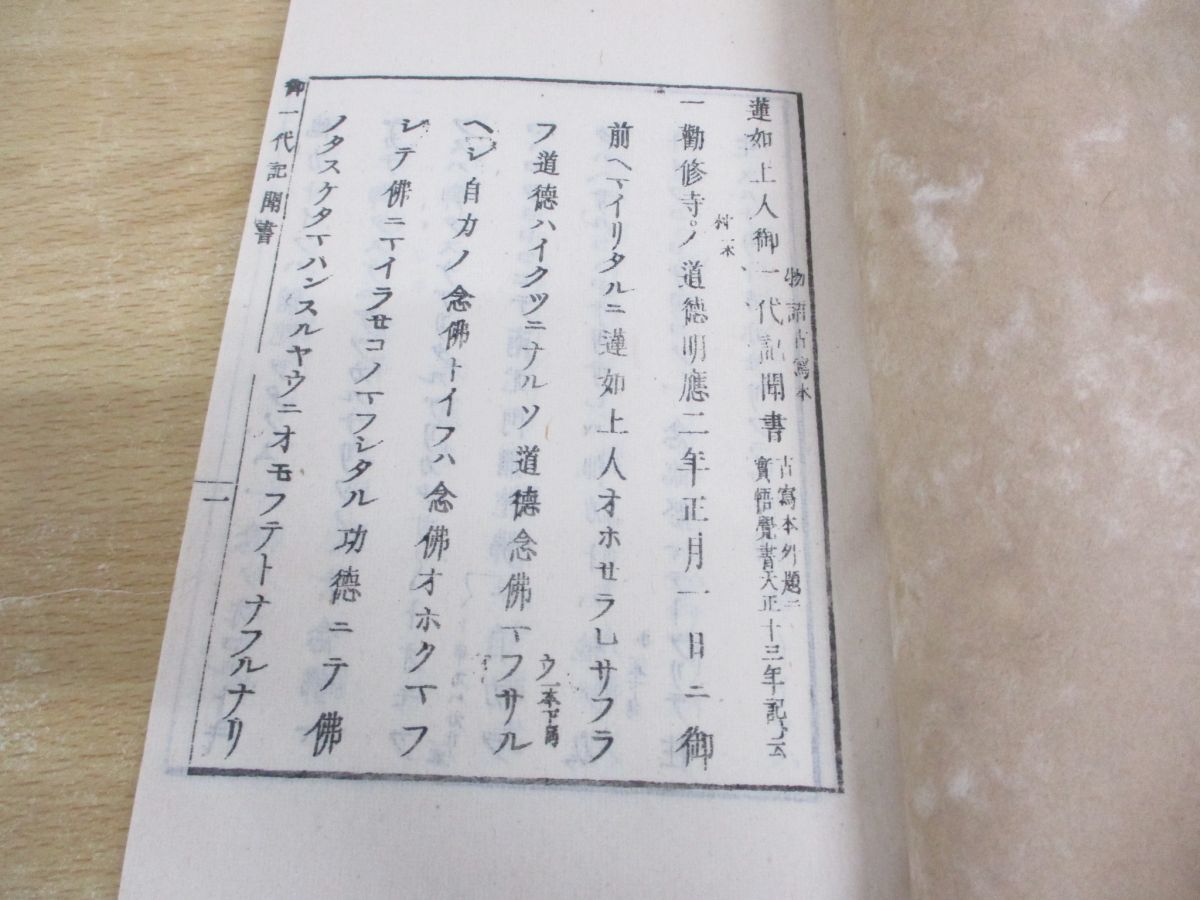 蓮如上人御一代記聞書
物語古寫本
古寫本外題ニ
實悟覺書大正十三年記ト云
一勸修寺ノ道德明應二年正月一日ニ御
村一本
前ヘマイリタルニ蓮如上人オホセラレサフラ
フ道德ハイクツニナルソ道德念佛マフサル
ウ一本下爲
ヘシ自力ノ念佛トイフハ念佛オホクマフ
シテ佛ニマイラセコノマフシタル功德ニテ佛
ノタスケタマハンスルヤウニオモフテトナフルナリ
御一代記聞書
一